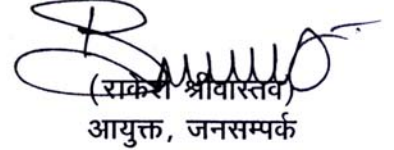 (राकेश श्रीवास्तव)
आयुक्त, जनसम्पर्क